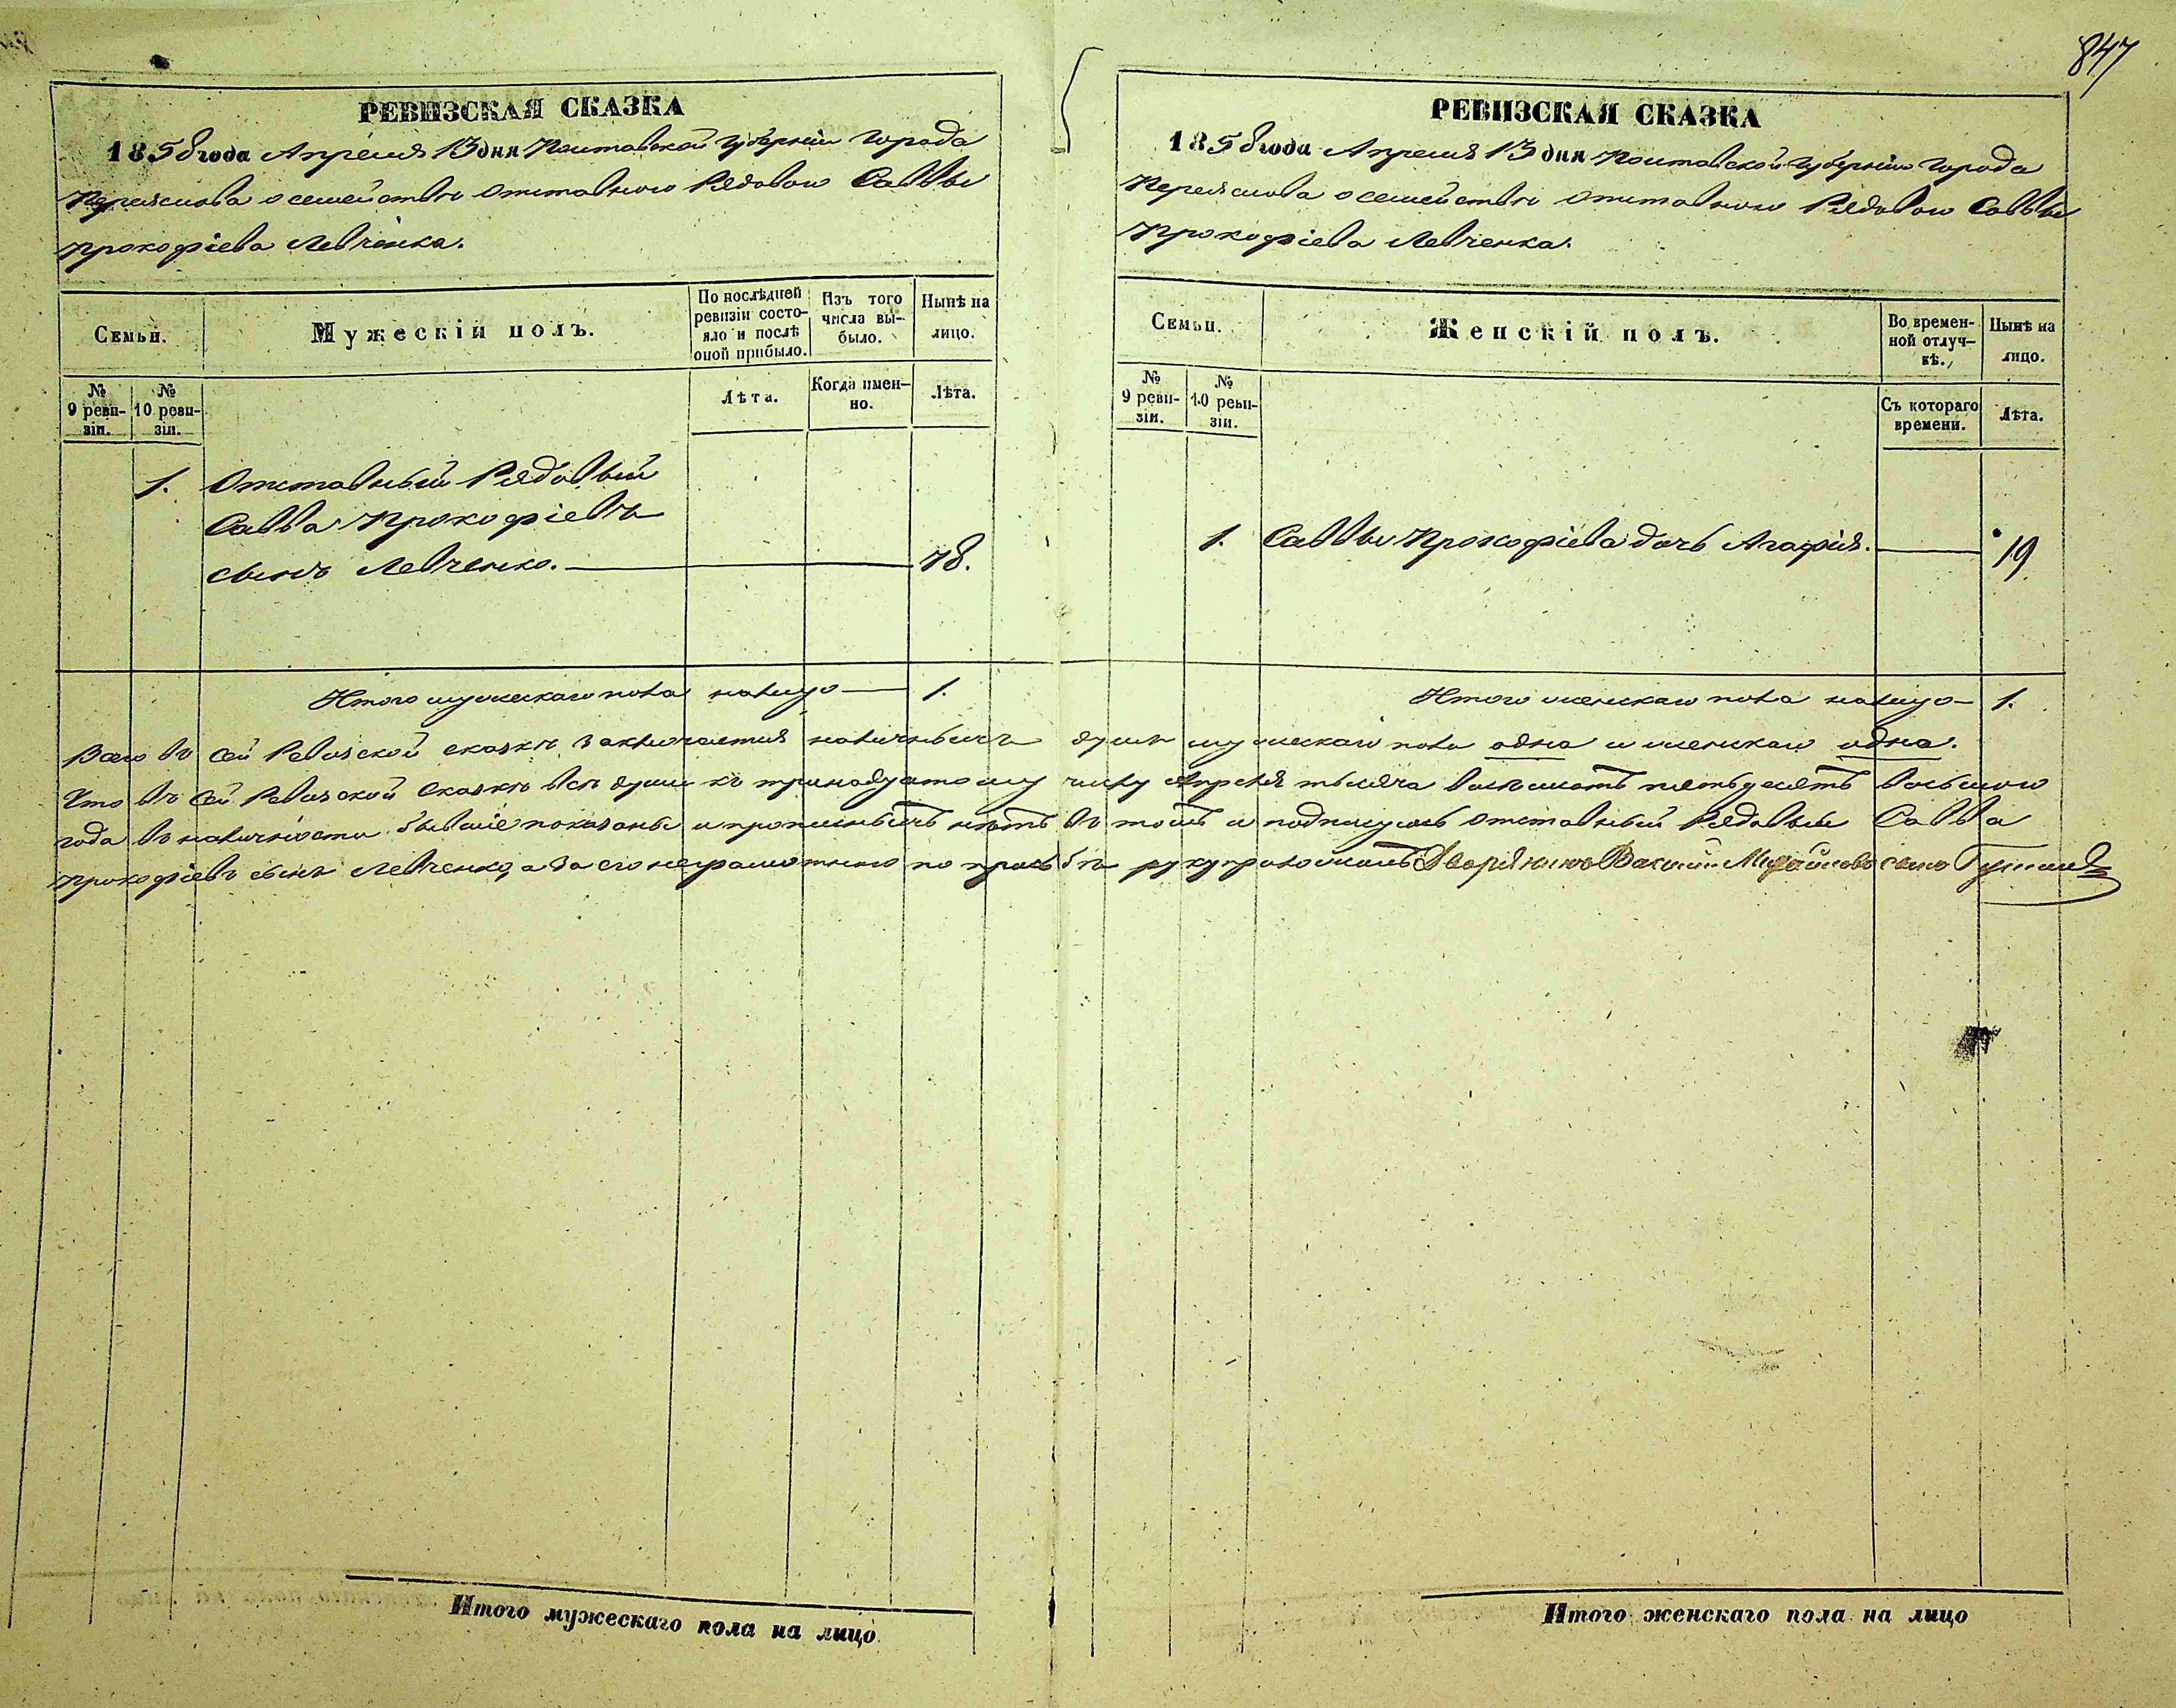 847
РЕВИЗСКАЯ СКАЗКА
1858 года Апреля 13 дня Полтавской губернiи города
Переяслова о семействѣ отставного Рядового Саввы
Прокофiева Левченка.
Семьи.
Мужескiй полъ.
По послѣдней ревизiи состояло и послѣ оной прибыло.
Изъ того числа выбыло.
Нынѣ на лицо.
№ 9 ревизiи.
№ 10 ревизiи.
Лѣта.
Когда именно.
Лѣта.
1. Отставный Рядовый
Савва Прокофiевъ
сынъ Левченко. 78.
Итого мужескаго пола налицо 1.
РЕВИЗСКАЯ СКАЗКА
1858 года Апреля 13 дня Полтавской губернiи города
Переяслова о семействѣ отставного Рядового Саввы
Прокофiева Левченка.
Семьи.
Женскiй полъ.
Во временной отлучкѣ.
Нынѣ на лицо.
№ 9 ревизiи.
№ 10 ревизiи.
Съ котораго времени.
Лѣта.
1. Саввы Прокофiева дочь Агафiя. 19
Итого женскаго пола налицо 1.
Всего въ сей Ревизской сказкѣ заключается наличныхъ душъ мужескаго пола одна и женскаго одна.
Что въ сей Ревизской сказкѣ всѣ души къ тринадцатому числу Апреля тысяча восемьсотъ пятьдесятъ восьмого
года въ наличности бывшiе показаны и прописныхъ нѣтъ въ томъ и подписуюсь отставный Рядовый Савва
Прокофiевъ сынъ Левченко, а за его неграмотного по прозьбѣ руку приложилъ Дворянинъ Михайловъ сынъ
Итого мужескаго пола на лицо
Итого женскаго пола на лицо